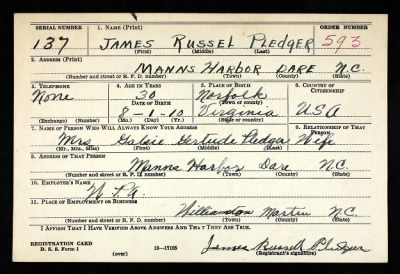 SERIAL NUMBER 1. NAME (Print) ORDER NUMBER
137 JAMES RUSSEL PLEDGER 593
(First) (Middle) (Last)
2. ADDRESS (Print)
MANNS HARBOR DARE N.C.
(Number and street or R. F. D. number) (Town) (County) (State)
3. TELEPHONE 4. AGE IN YEARS 5. PLACE OF BIRTH 6. COUNTRY OF CITIZENSHIP
None 30 Norfolk
DATE OF BIRTH (Town or county)
8-1-10 Virginia USA
(Exchange) (Number) (Mo.) (Day) (Yr.) (State or country)
7. NAME OF PERSON WHO WILL ALWAYS KNOW YOUR ADDRESS 8. RELATIONSHIP OF THAT PERSON
Mrs Gertrude Pledger Wife
(Mr., Mrs., Miss) (First) (Middle) (Last)
9. ADDRESS OF THAT PERSON
Manns Harbor Dare N.C.
(Number and street or R. F. D. number) (Town) (County) (State)
10. EMPLOYER'S NAME
W.P.A.
11. PLACE OF EMPLOYMENT OR BUSINESS
Williamston Martin N.C.
(Number and street or R. F. D. number) (Town) (County) (State)
I AFFIRM THAT I HAVE VERIFIED ABOVE ANSWERS AND THAT THEY ARE TRUE.
REGISTRATION CARD
D. S. S. Form 1 (over) 16—17105 James Russell Pledger
(Registrant's signature)